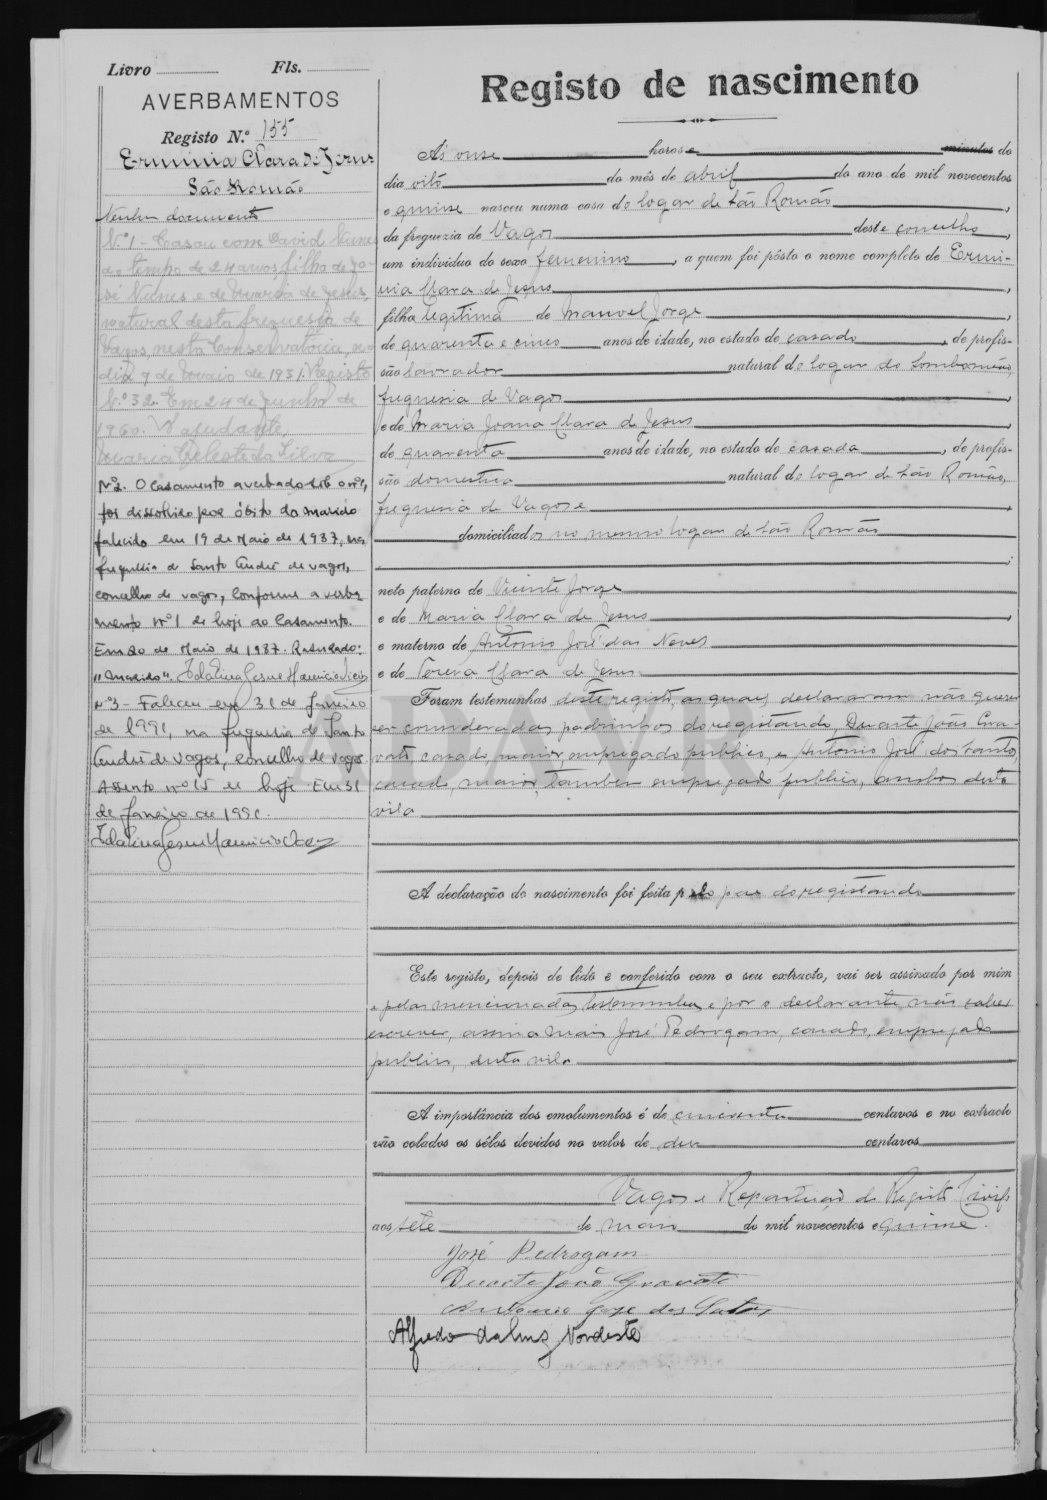 Livro Fls.
AVERBAMENTOS
Registo N.º 155
Erminia Clara de Jesus
São Romão
Nenhum documento
N.º 1 - Casou com David Nunes
de tempo de 24 anos filho de Jo-
sé Nunes e de Maria de Jesus,
natural desta freguesia de
Vagos, nesta Conservatória, no
dia 7 de Maio de 1931. Registo
N.º 32. Em 24 de Junho de
1960. O ajudante,
Maria Celeste da Silva
Nº 2. O casamento averbado sob o nº 1,
foi dissolvido por óbito do marido
falecido em 19 de Maio de 1937, na
freguesia de Santo André de Vagos,
concelho de Vagos, conforme averba
mento nº 1 de hoje ao casamento.
Em 20 de Maio de 1987. Rasurado:
"marido". Idalina Jesus Mauricio
Nº 3 - Faleceu em 31 de Janeiro
de 1991, na freguesia de Santo
André de Vagos, concelho de Vagos
Assento nº 15 de hoje. Em 31
de Janeiro de 1991.
Idalina Jesus Mauricio
Registo de nascimento
Ás onse horas e minutos do
dia oito do mês de abril do ano de mil novecentos
e quinse nasceu numa casa do logar de São Romão,
da freguezia de Vagos deste concelho,
um individuo do sexo femenino, a quem foi pôsto o nome completo de Ermi-
nia Clara de Jesus,
filha legitima de Manoel Jorge,
de quarenta e cinco anos de idade, no estado de casado, de profis-
são lavrador natural do logar do Lombomeão,
freguesia de Vagos,
e de Maria Joana Clara de Jesus,
de quarenta anos de idade, no estado de casada, de profis-
são domestica natural do logar de São Romão,
freguesia de Vagos e,
domiciliados no mesmo logar de São Romão
;
neto paterno de Vicente Jorge
e de Maria Clara de Jesus
e materno de António José das Neves
e de Tereza Clara de Jesus
Foram testemunhas deste registo, as quaes, declararam não querer
ser consideradas padrinhos do registando, Duarte João Gra-
vato, casado, maior, empregado publico, e António José dos Santos,
casado, maior, tambem empregado publico, ambos desta
vila
A declaração do nascimento foi feita pelo pae do registando
Este registo, depois de lido e conferido com o seu extracto, vai ser assinado por mim
e pelas mencionadas testemunhas e por o declarante não saber
escrever, assina mais José Pedrogam, casado, empregado
publico, desta vila
A importância dos emolumentos é de cincoenta centavos e no extracto
vão colados os sêlos devidos no valor de dez centavos
Vagos e Repartição do Registo Civil
aos sete de maio de mil novecentos e quinse.
José Pedrogam
Duarte João Gravato
Antonio Jose dos Santos
Alfredo da Luz Nordeste
ADAVR